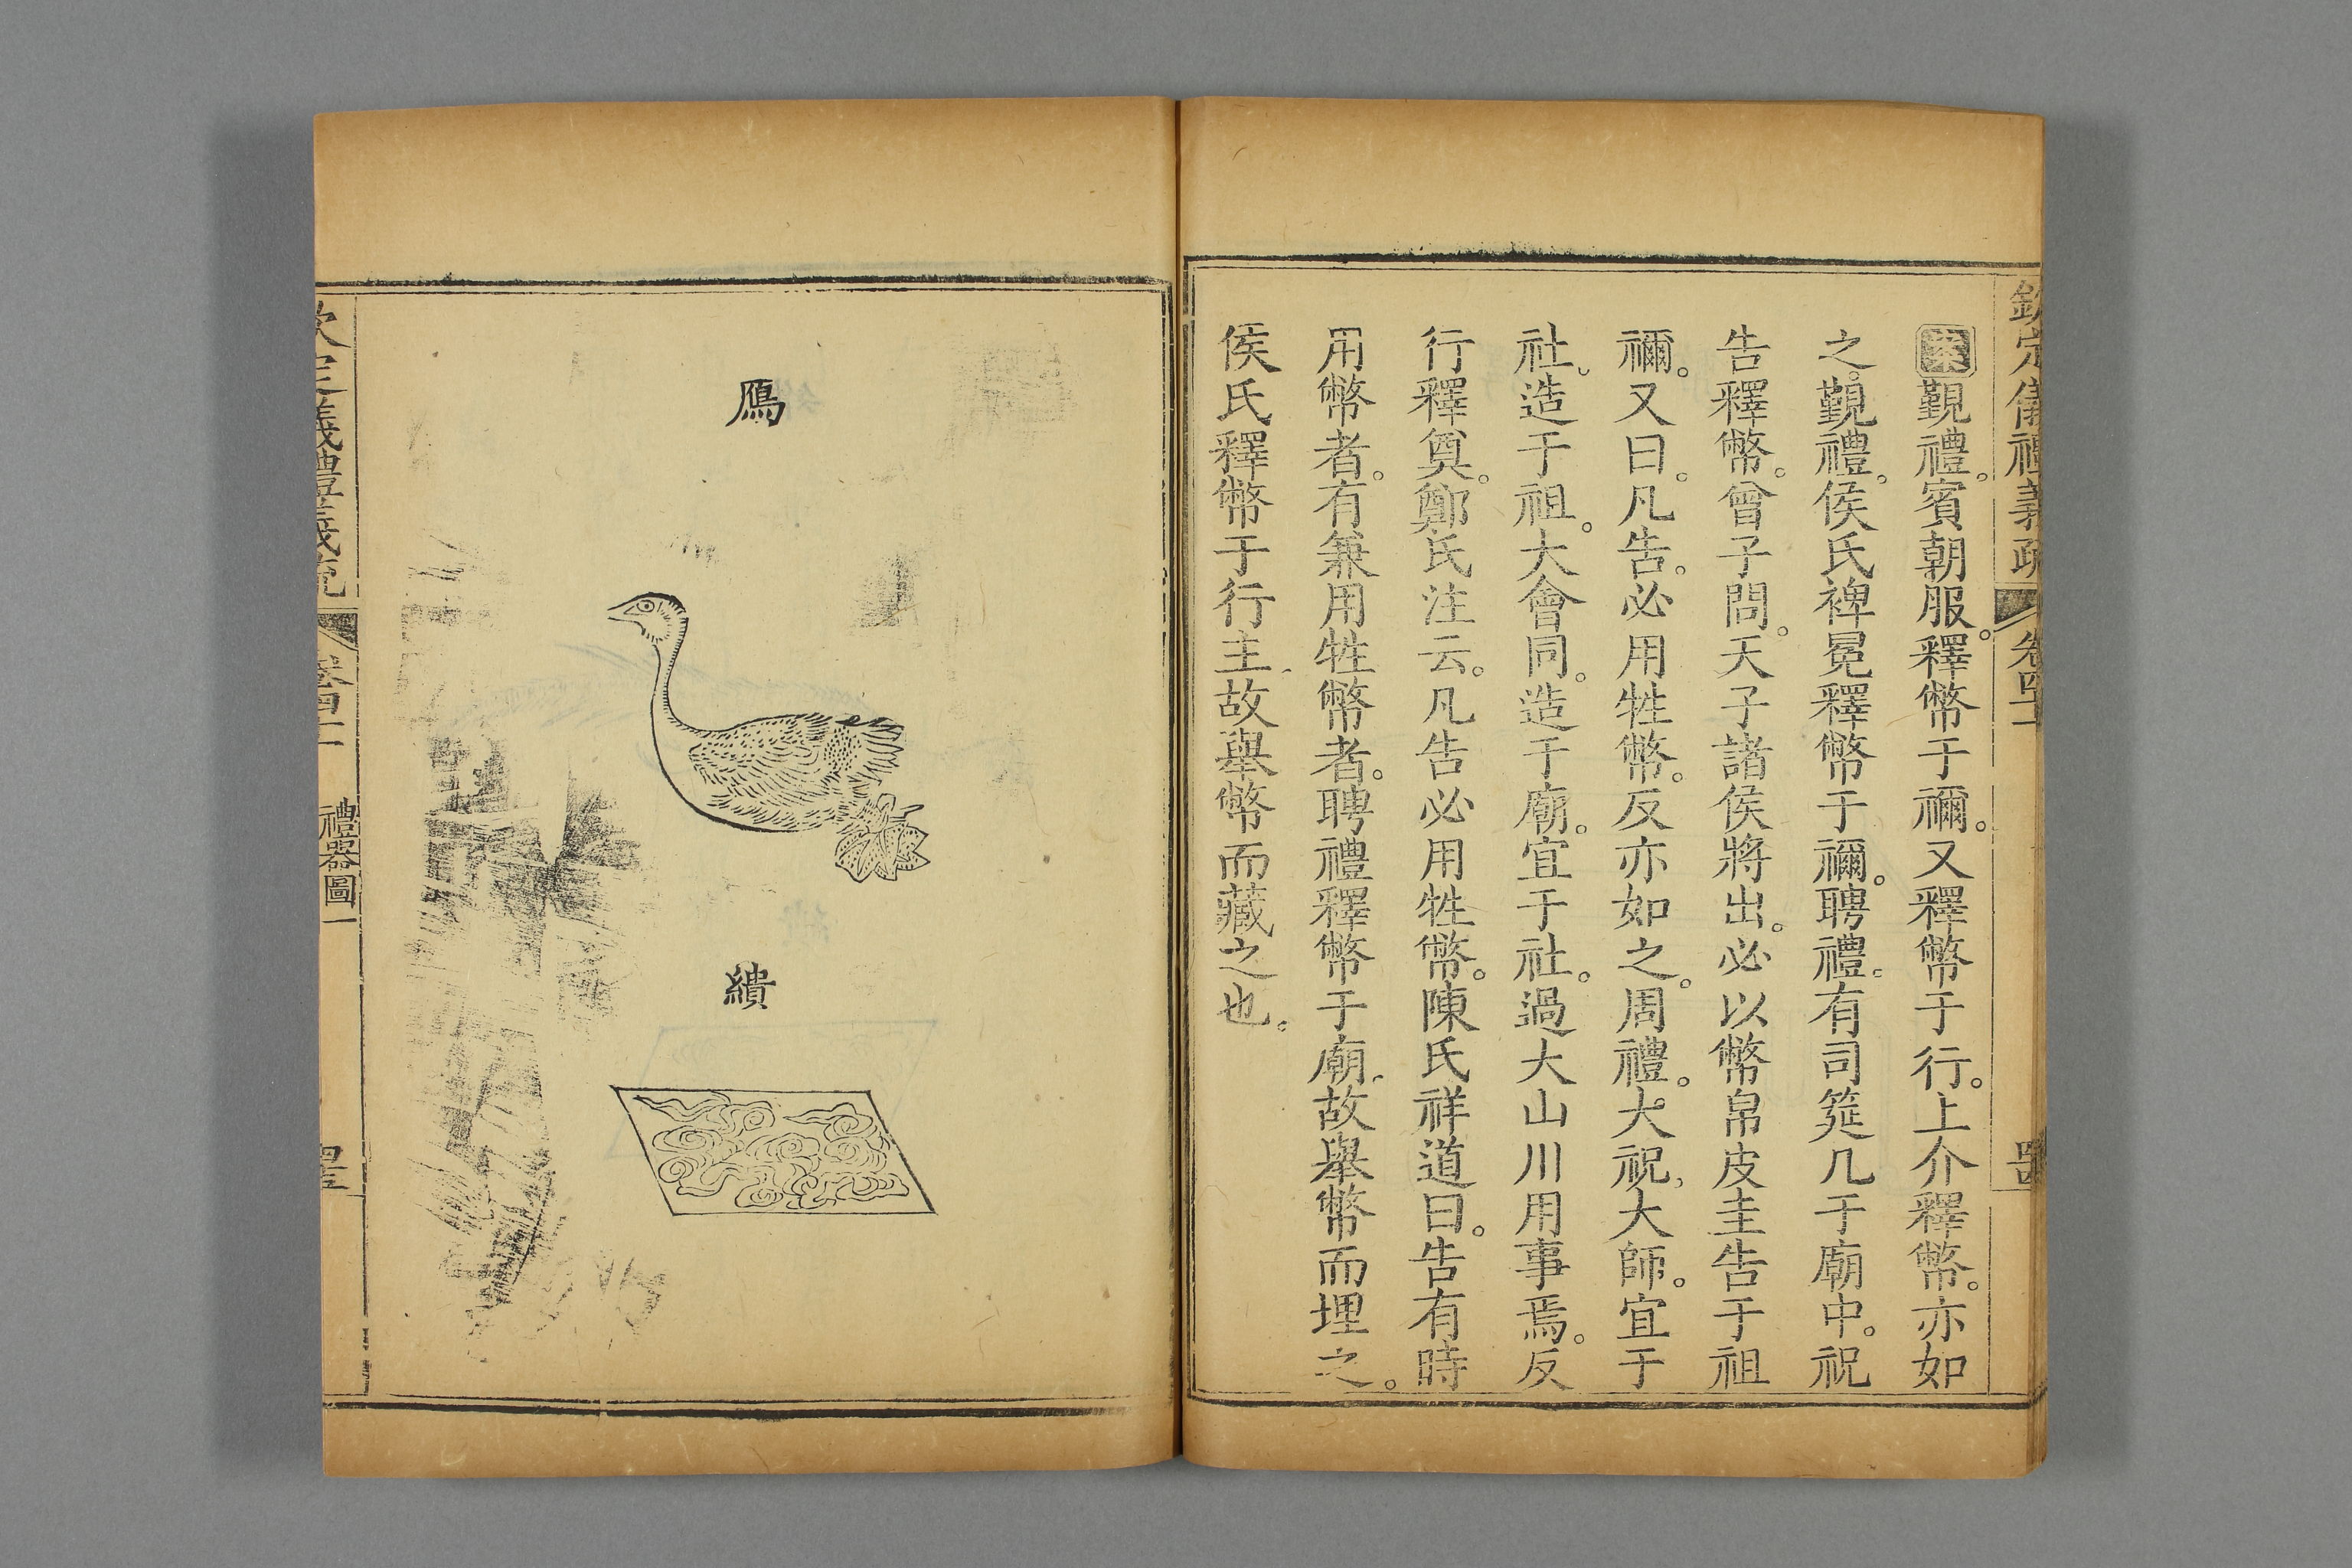 欽定儀禮義疏 卷四十一
案覲禮。賓朝服。釋幣于禰。又釋幣于行。上介釋幣。亦如
之。覲禮。侯氏裨冕釋幣于禰。聘禮。有司筵几于廟中。祝
告釋幣。曾子問。天子諸侯將出。必以幣帛皮圭告于祖
禰。又曰。凡告。必用牲幣。反亦如之。周禮。大祝。大師。宜于
社。造于祖。大會同。造于廟。宜于社。過大山川用事焉。反
行釋奠。鄭氏注云。凡告必用牲幣。陳氏祥道曰。告有時
用幣者。有兼用牲幣者。聘禮釋幣于廟。故舉幣而埋之。
侯氏釋幣于行主。故舉幣而藏之也。
鴈
繢
欽定儀禮義疏 卷四十一 禮器圖一